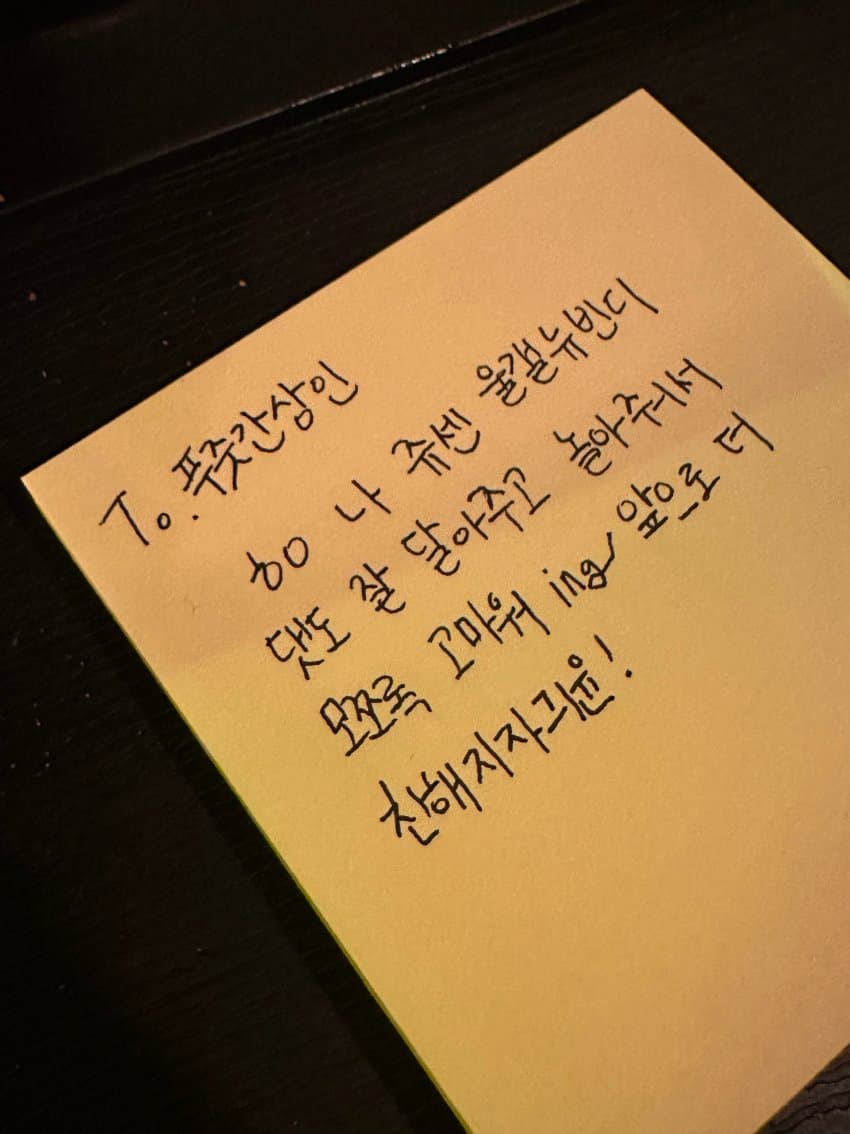 To. 푸줏간상인
ㅎo 나 쥬센 울갤뉴반디
댓도 잘 달아주고 놀아주워서
모쪼록 고마워 ing 앞으로 더
친해지자긔윤!